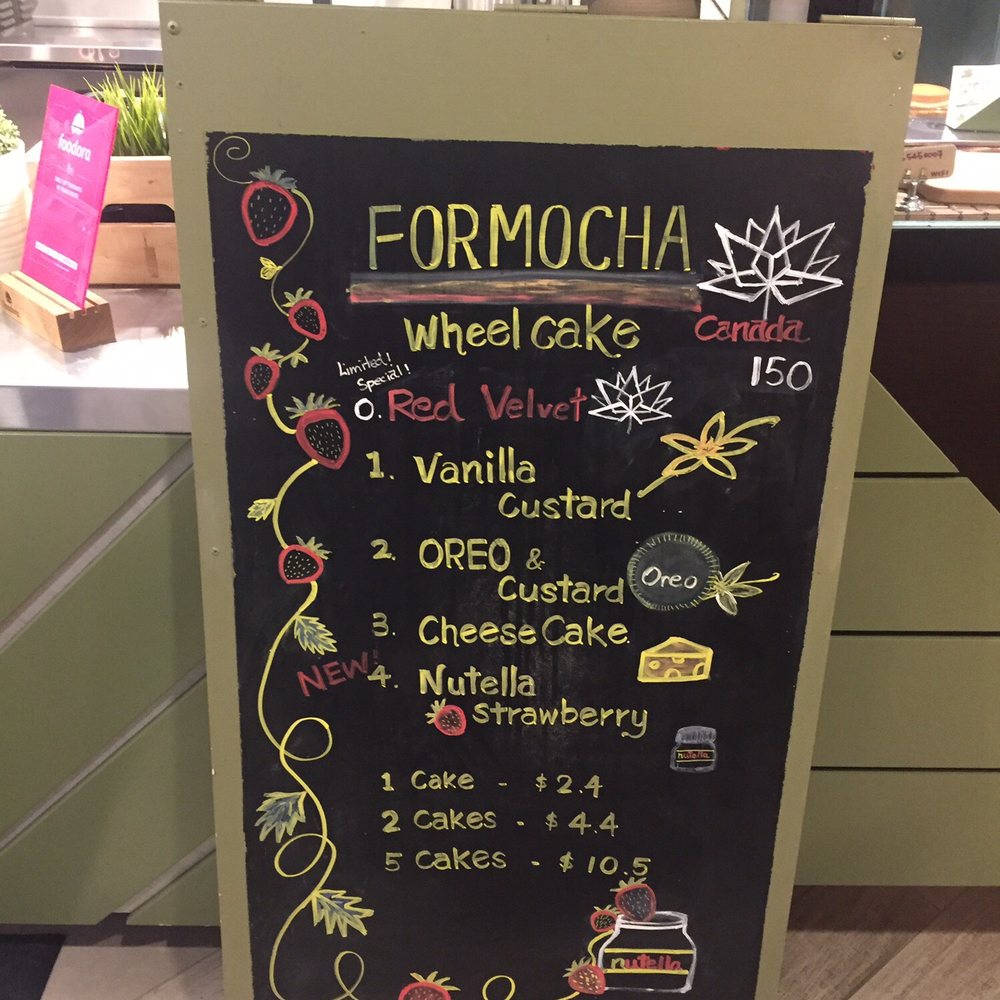 foodora
FORMOCHA
Wheel Cake
Canada
150
Limited!
Special!
0. Red Velvet
1. Vanilla
Custard
2. OREO &
Custard
Oreo
3. Cheese Cake
NEW!
4. Nutella
Strawberry
nutella
1 Cake - $2.4
2 Cakes - $4.4
5 Cakes - $10.5
nutella
WIFI